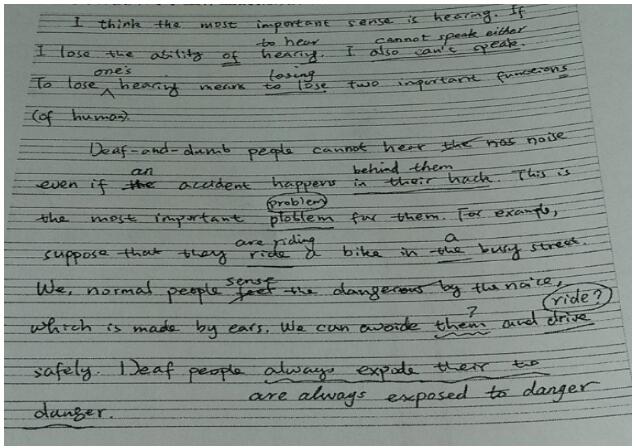 I think the most important sense is hearing. If
to hear cannot speak either
I lose the ability of hearing. I also can't speak.
one's losing
To lose hearing means to lose two important functions
(of human).
Deaf-and-dumb people cannot hear the noise
an behind them
even if the accident happens in their back. This is
problem
the most important ploblem for them. For example,
are riding a
suppose that they ride a bike in the busy street.
sense
We, normal people feel the dangerous by the noice,
ride?
which is made by ears. We can avoide them? and drive
safely. Deaf people always expode their to
are always exposed to danger
danger.